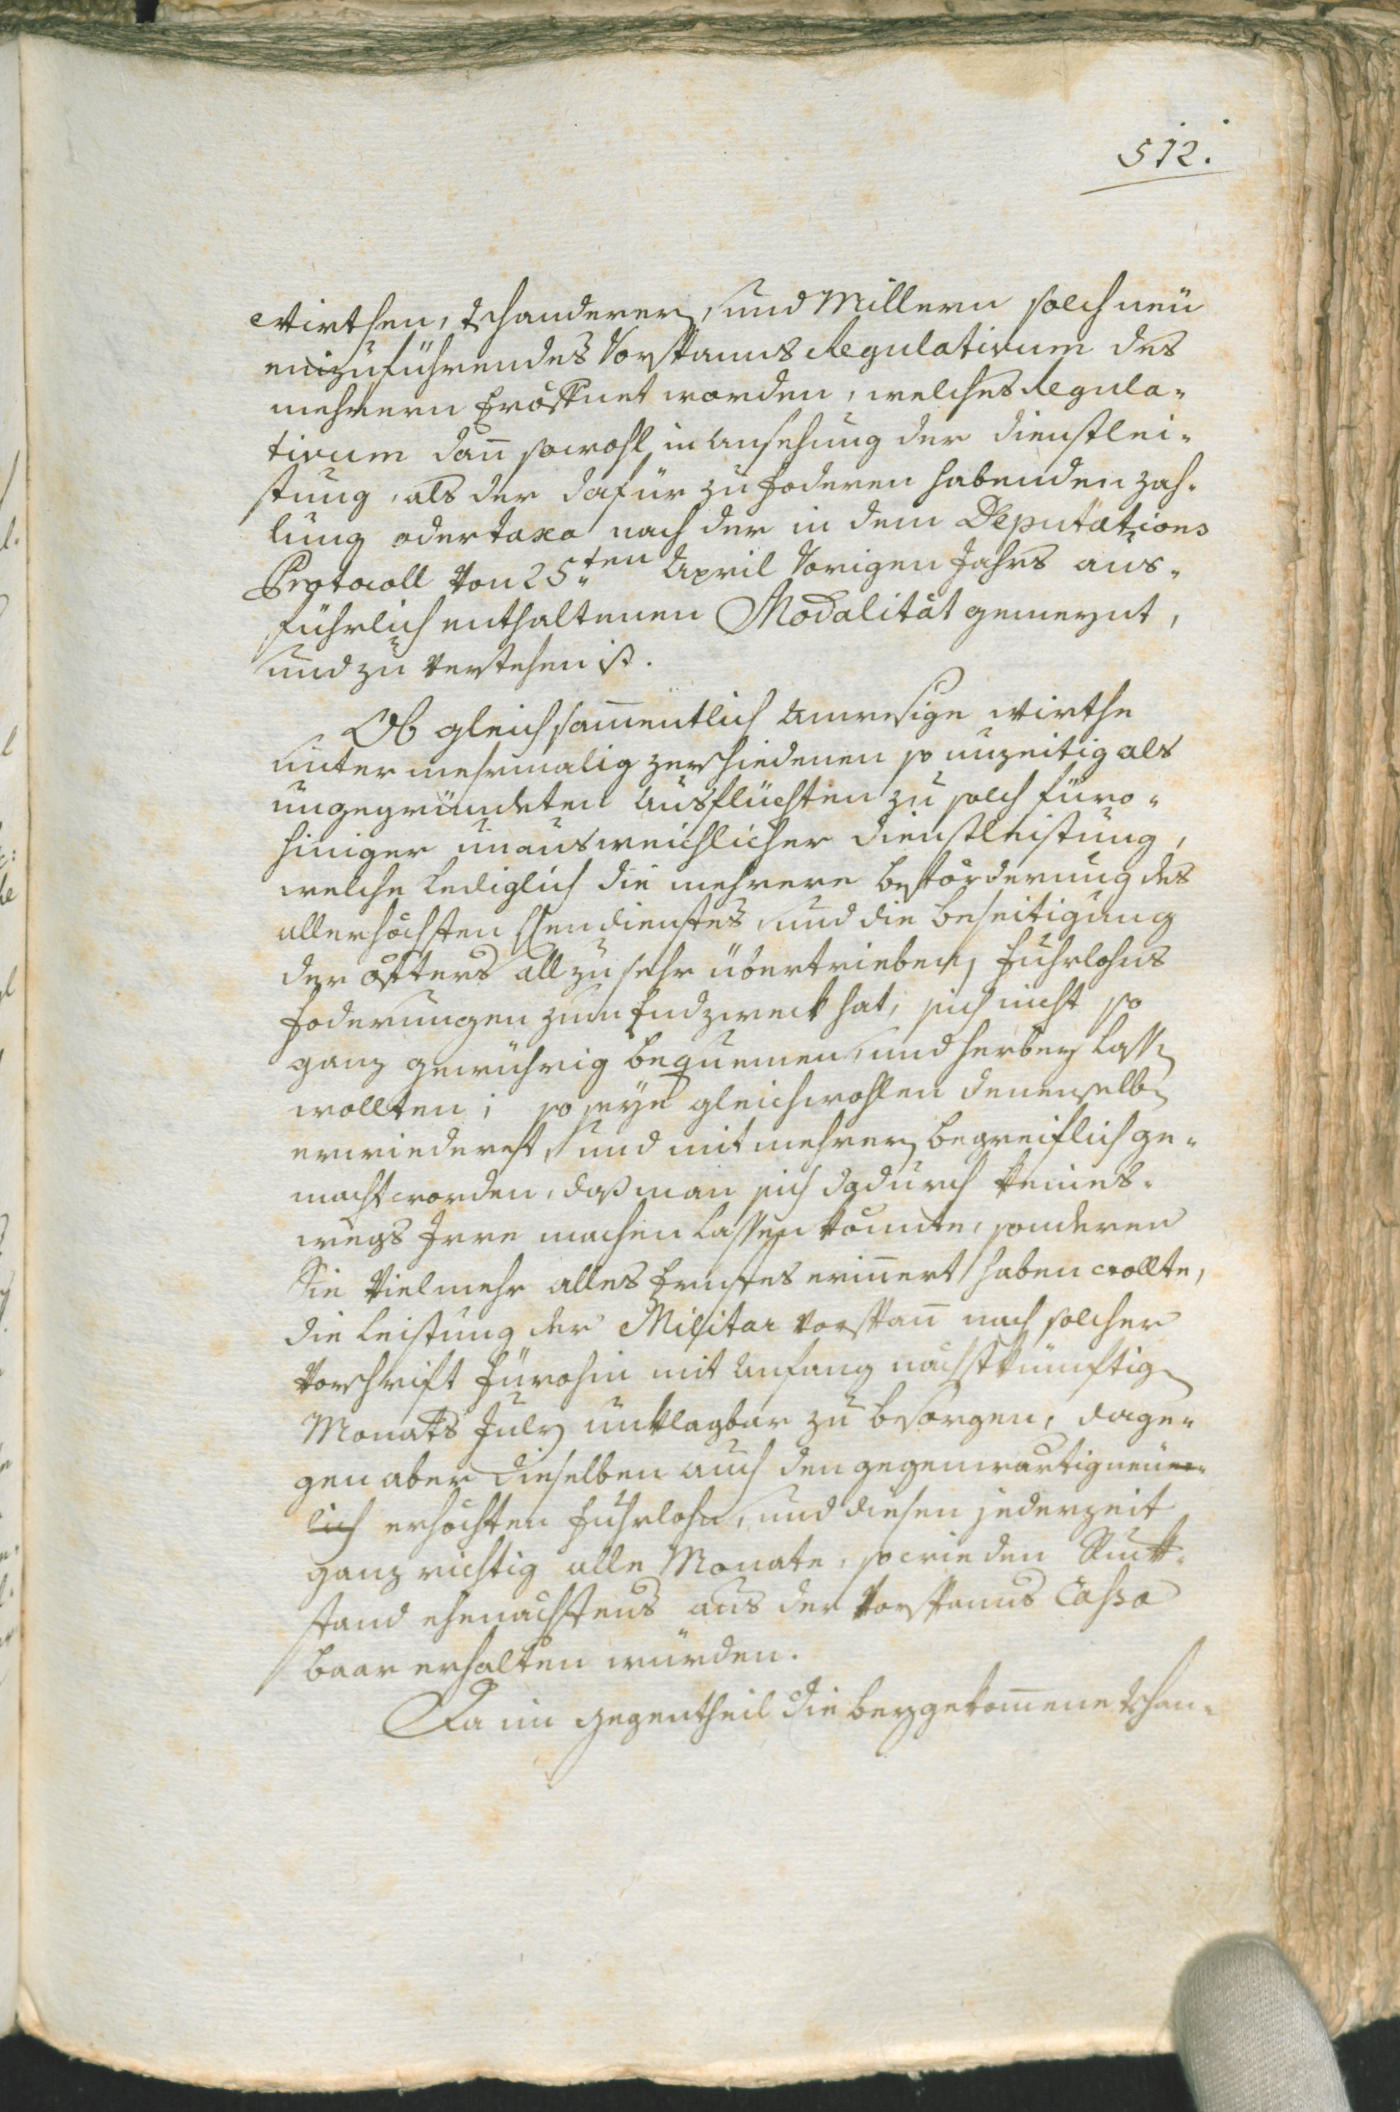 512.
Wirthen, Tschanderer, und Millern solch neü
einzuführendes Vorspanns Regulativum des
mehrern Eröffnet worden, welches Regula-
tivum dan̄ sowohl in Ansehung der Dienstlei-
stung, als der dafür zu foderen habenden Zah-
lung oder taxa nach der in dem Deputations
Protocoll von 25.ten April vorigen Jahrs aus-
führlich enthaltenen Modalität gemeynt,
und zu verstehen ist.
Ob gleich sam̄entlich Anwesige Wirthe
unter mehrmalig zerschiedenen so unzeitig als
ungegründeten Ausflüchten zu solch füro-
hiniger unausweichlicher Dienstleistung,
welche Lediglich die mehrere Beförderung des
allerhöchsten Herrendienstes, und die Beseitigung
der öfters allzu sehr übertrieben Fuhrlohns
foderungen zum Endzweck hat, sich nicht so
ganz gerührig bequemen, und herbey Lassen
wollten; so seye gleichwohlen denenselben
erwiederet, und mit mehrer begreiflich ge-
macht worden, daß man sich dadurch keines-
wegs Irre machen Lassen könnte, sonderen
Sie vielmehr alles Ernstes erin̄ert haben wollte,
die Leistung der Militar Vorspan̄ nach solcher
Vorschrift fürohin mit Anfang nächstkünftigen
Monats July unklagbar zu besorgen, dage-
gen aber dieselben auch den gegenwärtig neüer-
lich erhöchten Fuhrlohn, und diesen jederzeit
ganz richtig alle Monate, so wie den Ruck-
stand ehenächstens aus der Vorspanns Cassa
baar erhalten würden.
Da im gegentheil die beygekom̄ene Tschan-